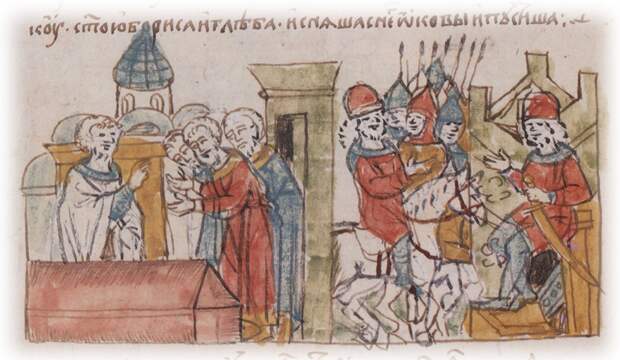 коу · стою бориса и глѣба · и снѧша с неи ковы и пꙋсиша ;